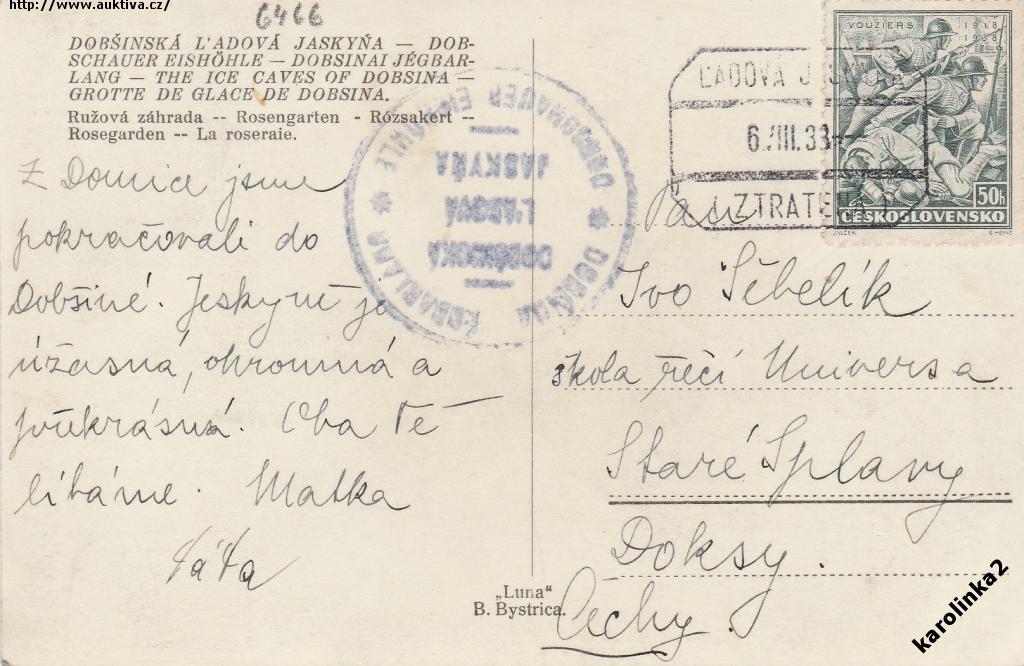 http://www.auktiva.cz/
6466
DOBŠINSKÁ ĽADOVÁ JASKYŇA — DOB-
SCHAUER EISHÖHLE — DOBSINAI JÉGBAR-
LANG — THE ICE CAVES OF DOBSINA —
GROTTE DE GLACE DE DOBSINA.
Ružová záhrada -- Rosengarten - Rózsakert --
Rosegarden -- La roseraie.
Z Domice jsme
pokračovali do
Dobšiné. Jeskyně je
úžasná, ohromná a
překrásná. Oba Tě
líbáme. Matka
táta
DOBŠINSKÁ
ĽADOVÁ
JASKYŇA
DOBSCHAUER
ĽADOVÁ
ZTRATENÁ
VOUZIERS 1918
1938
50h
ČESKOSLOVENSKO
J.VLČEK. B HEINZ
Pan
Ivo Šebelík
škola řečí Universa
Staré Splavy
Doksy.
Čechy.
„Luna"
B. Bystrica.
karolinka2